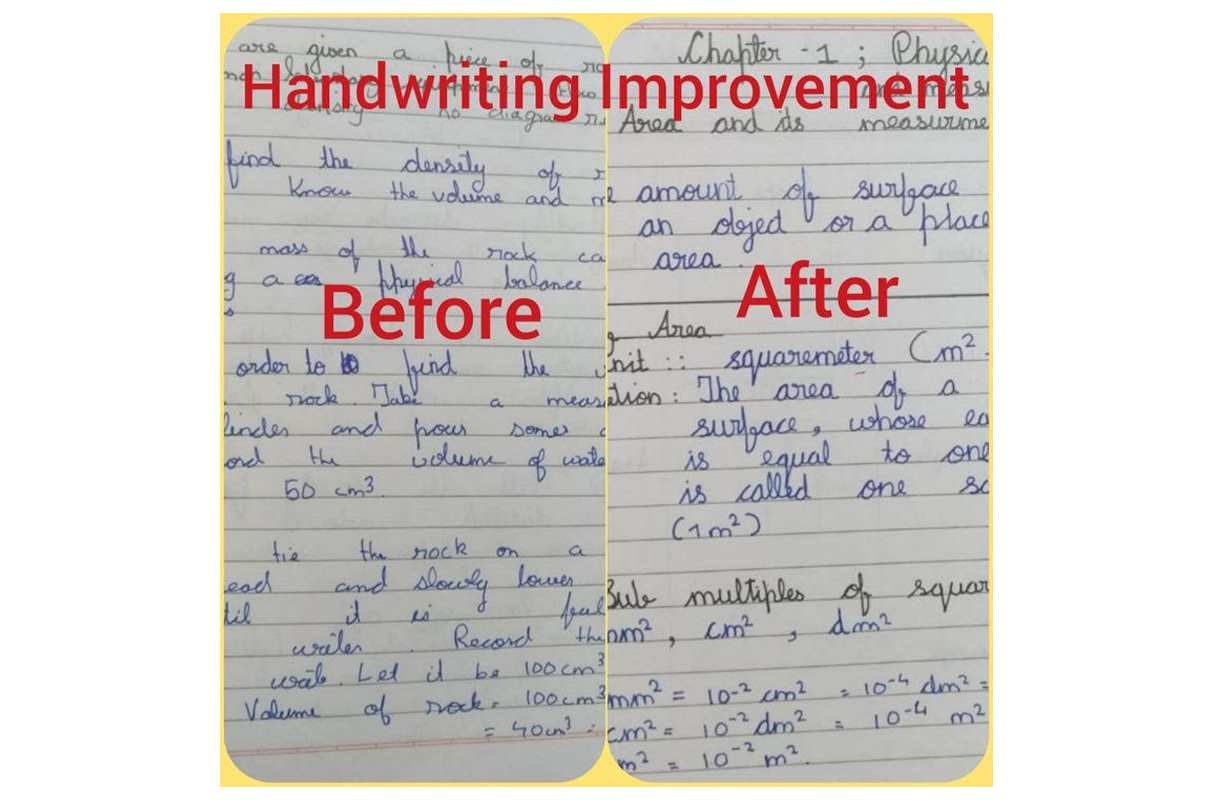 Handwriting Improvement
Before
are given a piece of
density no diagram
find the density of
Know the volume and
mass of the rock ca
g a physical balance
order to find the
rock. Take a meas
linder and pour some
ord the volume of wate
50 cm³.
tie the rock on a
ead and slowly lower
til it is ful
water. Record the
wate. Let it be 100 cm³
Volume of rock = 100 cm³
= 40cm³ =
After
Chapter - 1 ; Physica
and meas
Area and its measurme
amount of surface
an objed or a place
area.
Area
Unit :: squaremeter (m²
ition : The area of a
surface, whose ea
is equal to one
is called one sq
(1m²)
Sub multiples of squar
mm², cm², dm²
mm² = 10⁻² cm² = 10⁻⁴ dm² =
cm² = 10⁻² dm² = 10⁻⁴ m²
m² = 10⁻² m².